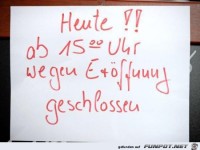 Heute !!
ab 15⁰⁰ Uhr
wegen Eröffnung
geschlossen
FUNPOT.NET